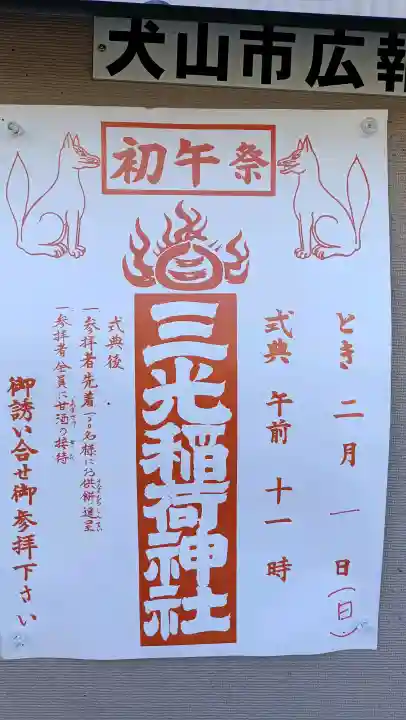 犬山市広報
初午祭
とき 二月 一日(日)
式典 午前 十一時
三光稲荷神社
式典後
一参拝者先着一〇〇名様にお供餅進呈
一参拝者全員に甘酒の接待
御誘い合せ御参拝下さい